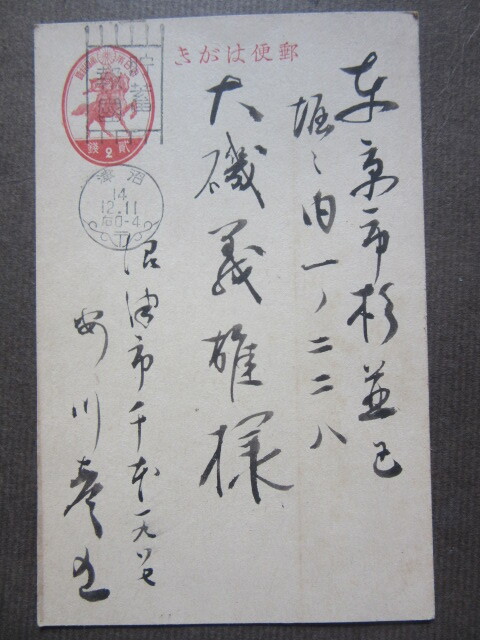 郵便はがき
東京市杉並区
堀ノ内一ノ二二八
大磯義雄様
沼津市千本一九八七
安川
貯蓄
報國
貳銭
2
沼津
14
12.11
后0-4